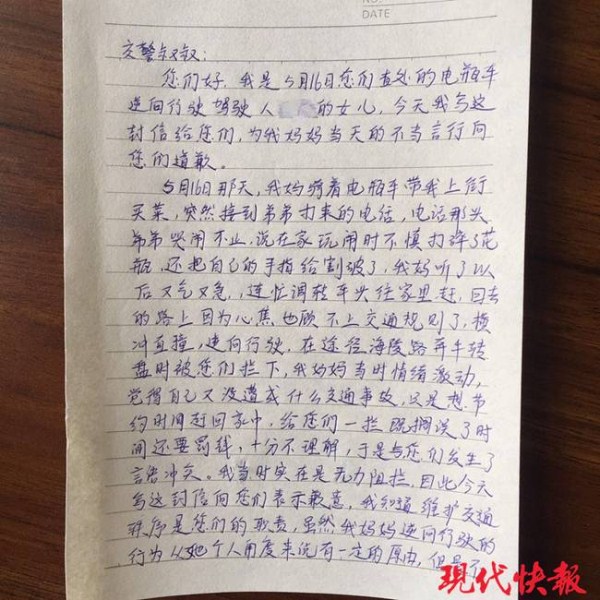 NO.
DATE
交警叔叔:
您们好,我是5月16日您们查处的电瓶车
逆向行驶驾驶人的女儿,今天我写这
封信给您们,为我妈妈当天的不当言行向
您们道歉。
5月16日那天,我妈骑着电瓶车带我上街
买菜,突然接到弟弟打来的电话,电话那头
弟弟哭闹不止,说在家玩闹时不慎打碎了花
瓶,还把自己的手指给割破了,我妈听了以
后又气又急,连忙调转车头往家里赶,回去
的路上因为心焦也顾不上交通规则了,横
冲直撞,逆向行驶,在途径海陵路奔牛转
盘时被您们拦下,我妈妈当时情绪激动,
觉得自己又没造成什么交通事故,只是想节
约时间赶回家中,给您们一拦既搁误了时
间还要罚钱,十分不理解,于是与您们发生了
言语冲突。我当时实在是无力阻拦,因此今天
写这封信向您们表示歉意,我知道维护交通
秩序是您们的职责,虽然我妈妈逆向行驶的
行为从她个人角度来说有一定的原由,但是
现代快報